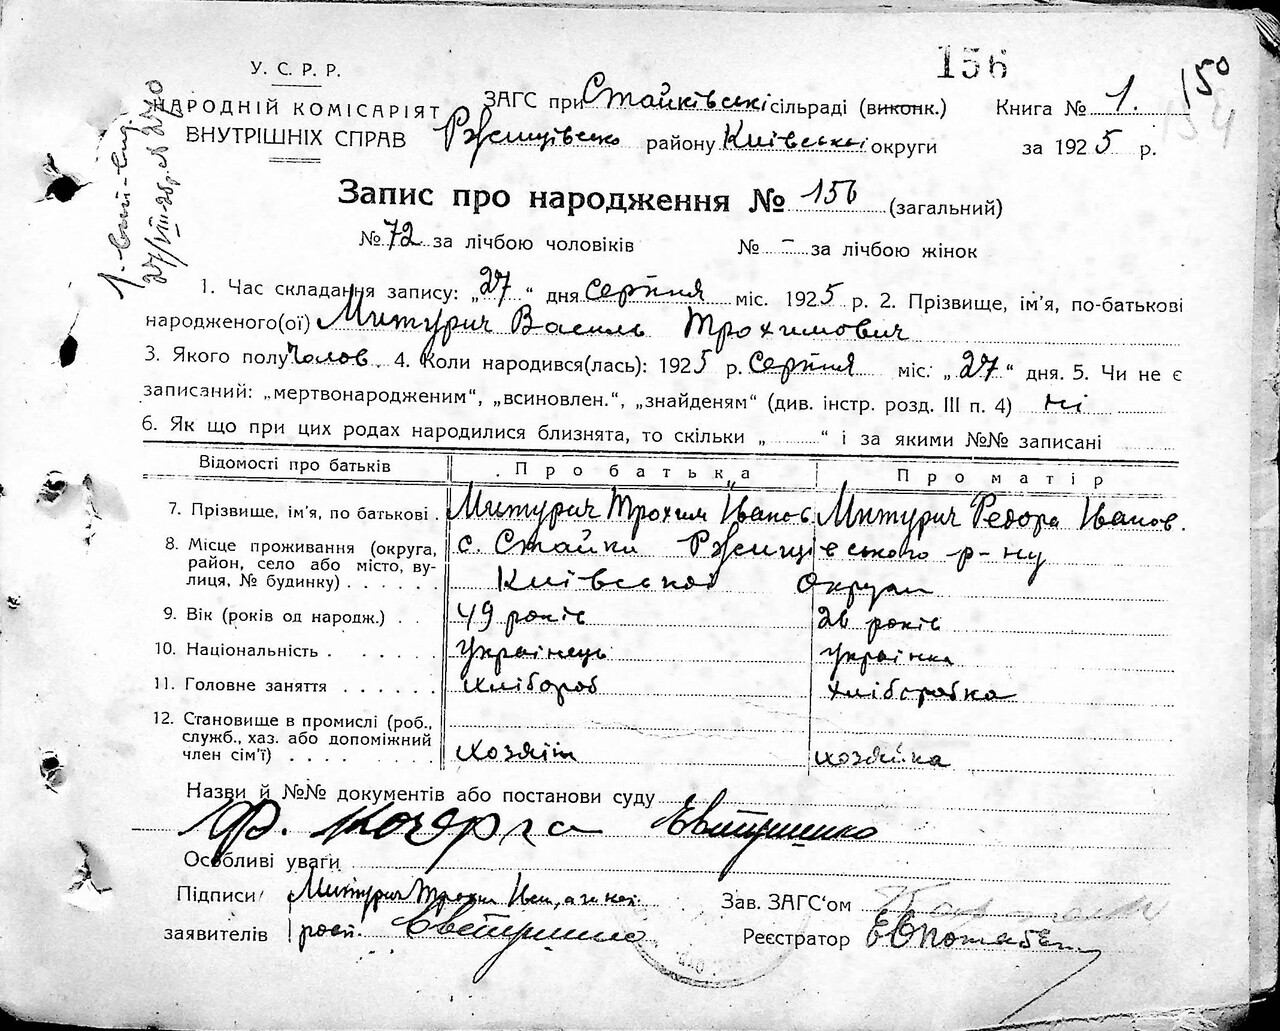 156
150
У. С. Р. Р.
НАРОДНІЙ КОМІСАРІЯТ
ВНУТРІШНІХ СПРАВ
ЗАГС при Стайківській сільраді (виконк.) Книга № 1.
Ржищівсько району Київської округи за 1925 р.
Запис про народження № 156 (загальний)
№ 72 за лічбою чоловіків № – за лічбою жінок
1. Час складання запису: „27“ дня серпня міс. 1925 р. 2. Прізвище, ім'я, по-батькові
народженого(ої) Митурич Василь Трохимович
3. Якого полу Чолов. 4. Коли народився(лась): 1925 р. серпня міс. „27“ дня. 5. Чи не є
записаний: „мертвонародженим“, „всиновлен.“, „знайденям“ (див. інстр. розд. III п. 4) ні
6. Як що при цих родах народилися близнята, то скільки „ “ і за якими №№ записані
Відомості про батьків Про батька Про матір
7. Прізвище, ім'я, по батькові. Митурич Трохим Іванов Митурич Федора Іванов.
8. Місце проживання (округа, район, село або місто, вулиця, № будинку) с. Стайки Ржищівського р-ну
Київської Округи
9. Вік (років од народж.) 49 років 26 років
10. Національність українець українка
11. Головне заняття хлібороб хліборобка
12. Становище в промислі (роб.,
служб., хаз. або допоміжний
член сім'ї) хозяїн хозяйка
Назви й №№ документів або постанови суду
Ф. Кочерга Євтушенко
Особливі уваги
Підписи Митурич Трохим Зав. ЗАГС'ом
заявителів розп. Євтушенко Реєстратор